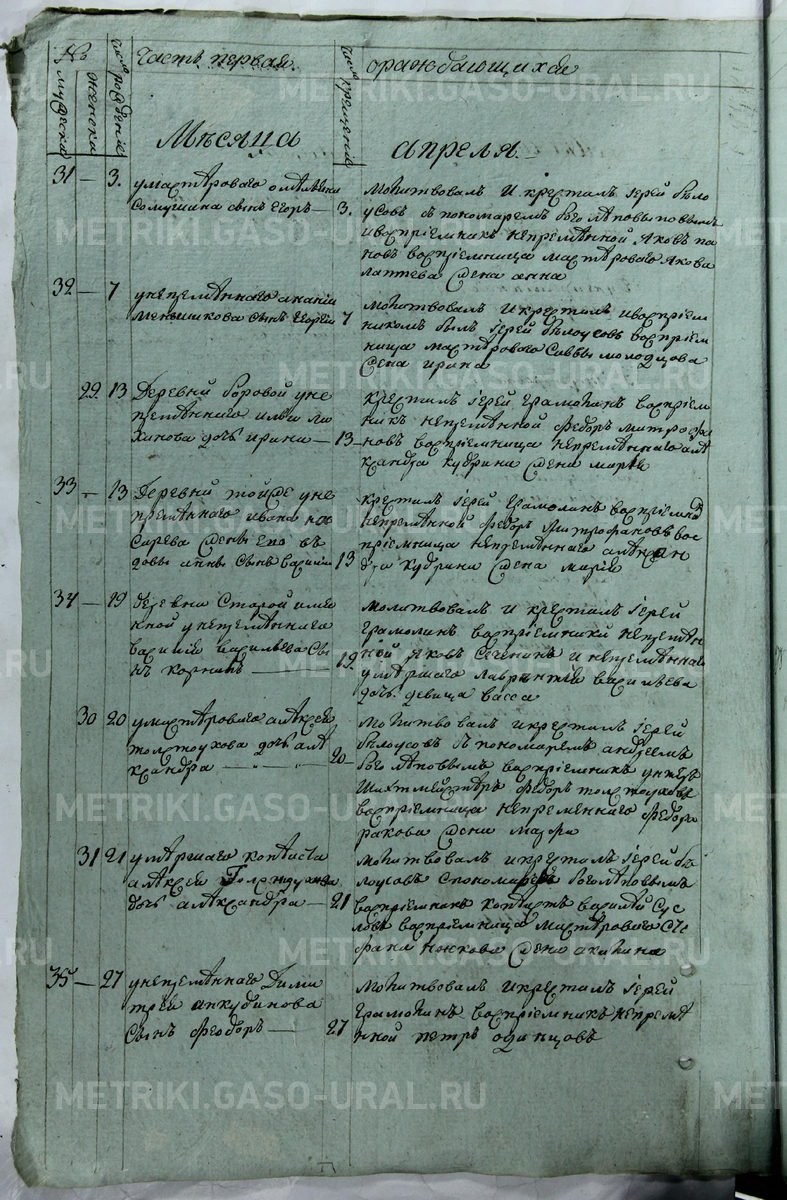 №
мужеска
женска
число рождение
часть первая
число крещение
о раждающихся
Мѣсяца
апреля
31 — 3. у мастероваго
сын Егоръ —
3. молитвовалъ и крестилъ їерей бѣло
усовъ с пономаремъ боголѣповы
и восприемникъ непремѣнной яковъ па
новъ восприемница мастероваго якова
лаптева жена анна
32 — 7 у непремѣннаго анании
меньшикова сынъ георгий
7 молитвовалъ и крестилъ и восприем
никомъ былъ їерей бѣлоусовъ восприем
ница мастероваго саввы молодцова
жена ирина
29 13 Деревни боровой у не
премѣннаго ильи ли
ханова дочь ирина — 13 —
крестилъ їерей грамолинъ восприем
никъ непремѣнной федоръ митрофа
новъ восприемница непремѣннаго але
ксандра кудрина жена марья
33 — 13 Деревни тойже у не
премѣннаго ивана
жены его в
довы анны сынъ василий
13
крестилъ їерей грамолинъ восприемникъ
непремѣнной федоръ митрофановъ вос
приемница непремѣннаго алексан
дра кудрина жена мария
34 — 19 деревни Старой
у непремѣннаго
василия васильева сы
нъ корнилъ —
19. молитвовалъ и крестилъ їерей
грамолинъ восприемники непремѣн
ной яковъ и непремѣннаго
умершаго лаврентия василиева
дочь девица васса
30 20 у мастероваго алексея
толстоухова дочь але
ксандра —
20 молитвовалъ и крестилъ їерей
бѣлоусовъ съ пономаремъ андреемъ
боголѣповымъ восприемникъ унтеръ
шихтмейстеръ федоръ толстоуховъ
восприемница непременнаго федора
ракова жена мавра
31 21 умершаго кописта
алексея
дочь александра —
21 молитвовалъ и крестилъ їерей бѣ
лоусовъ с пономаремъ боголѣповымъ
восприемникъ копистъ василий сус
ловъ восприемница мастероваго сте
фана носкова жена акилина
35 — 27 у непремѣннаго дими
трия анкудинова
сынъ феодоръ —
27 молитвовалъ и крестилъ їерей
грамолинъ восприемникъ непремѣ
нной петръ одинцовъ
METRIKI.GASO-URAL.RU